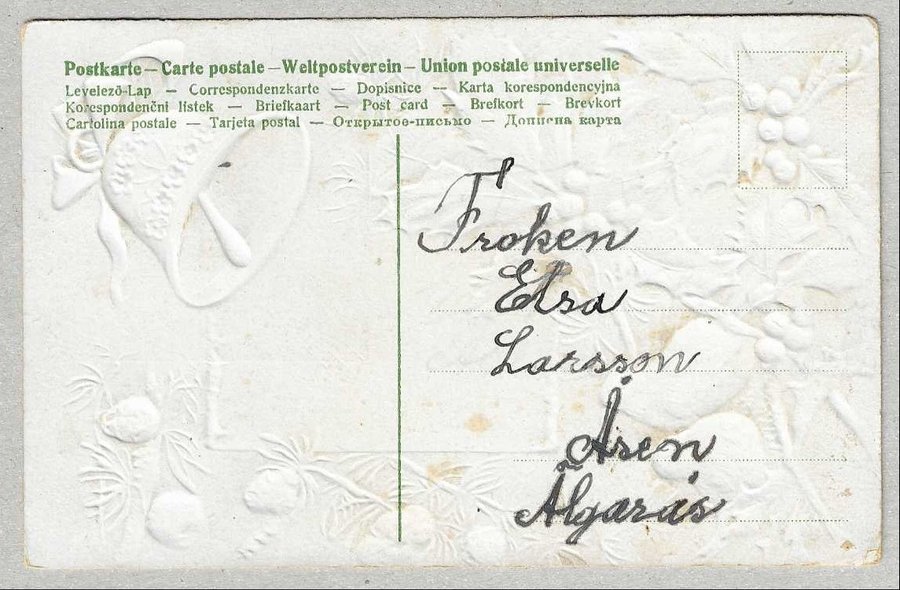 Postkarte – Carte postale – Weltpostverein – Union postale universelle
Levelező-Lap — Correspondenzkarte — Dopisnice — Karta korespondencyjna
Korespondenční lístek — Briefkaart — Post card — Brefkort — Brevkort
Cartolina postale — Tarjeta postal — Открытое-письмо — Дописна карта
Fröken
Elsa
Larsson
Åsen
Älgarås